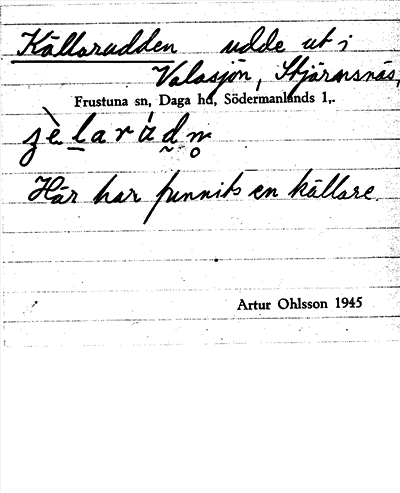 Källarudden udde ut i
Valasjön, Stjärnsnäs,
Frustuna sn, Daga hd, Södermanlands l,.
Här har funnits en källare.
Artur Ohlsson 1945